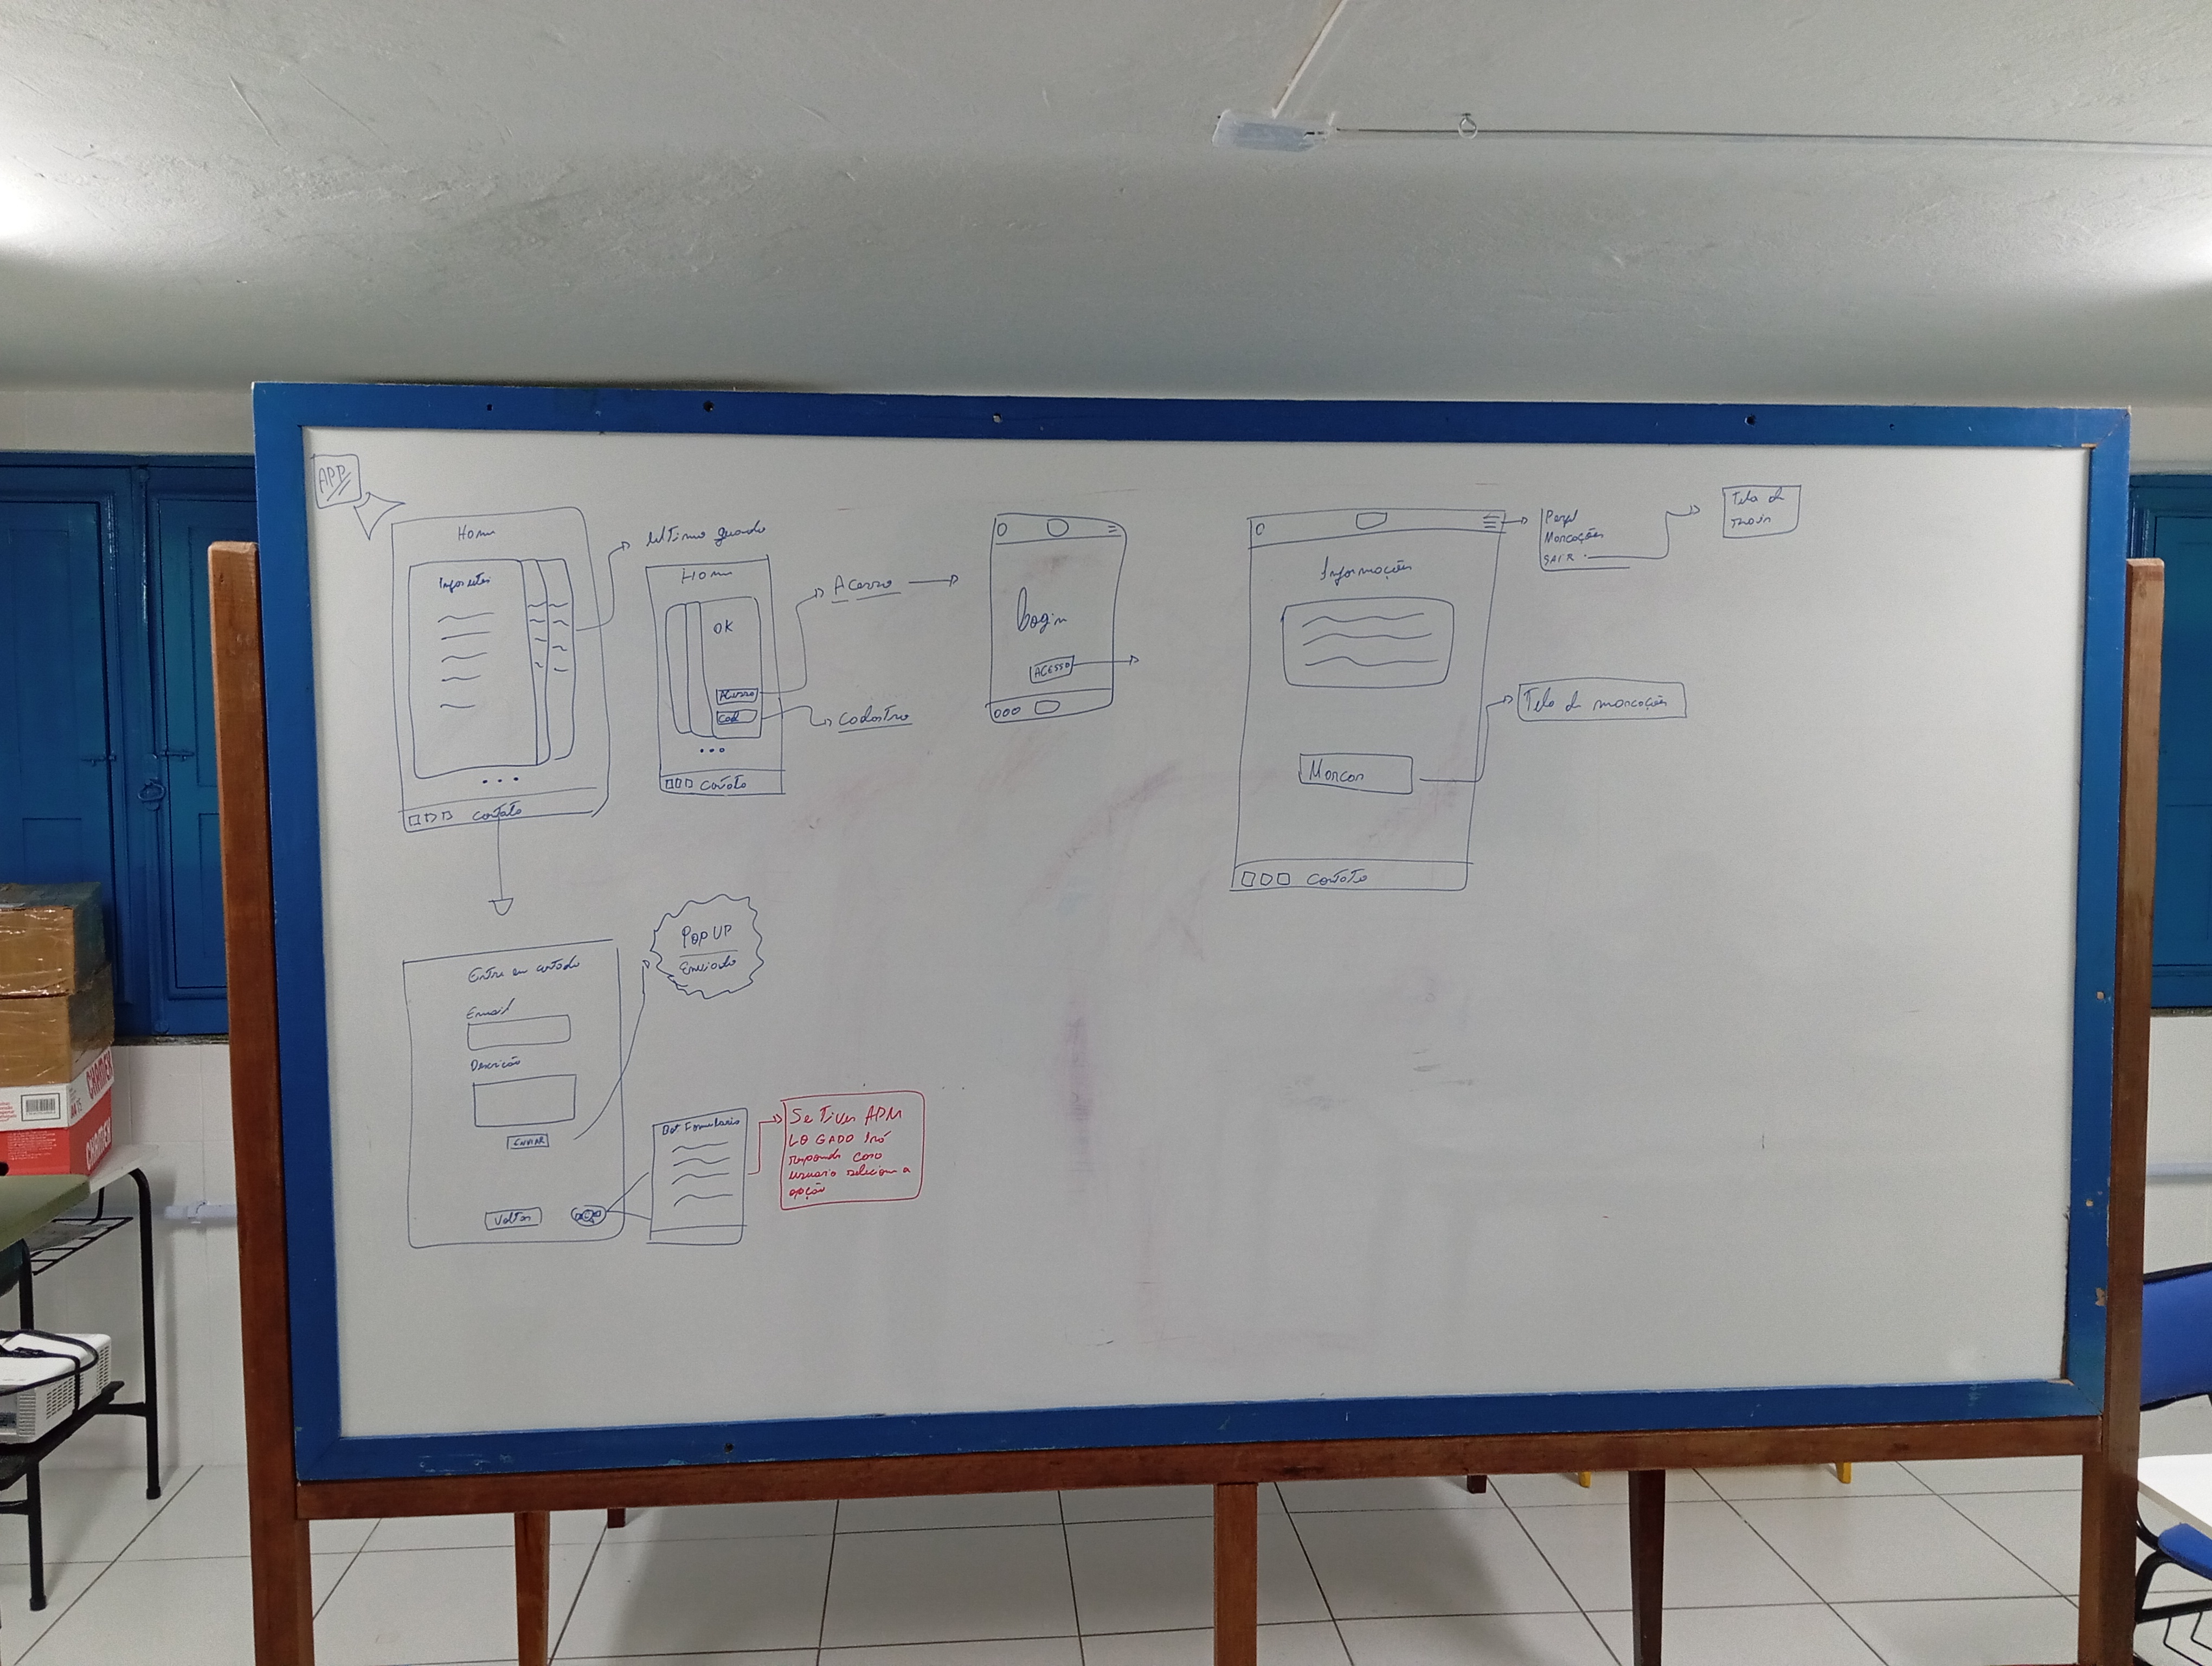 APP
Home
Informações
ultimo quando
Contato
Home
OK
Acesso
Cad
Contato
Acesso
Cadastro
Login
ACESSO
Informações
Marcar
Contato
Perfil
Marcações
SAIR
Tela de
Tela de marcações
Entre em contado
Email
Descricão
ENVIAR
Voltar
POP UP
Enviado
Bot Formulario
Se Tiver ADM
LOGADO Irá
responde caso
usuario selecione a
opção
CHAMEX
CHAMEX